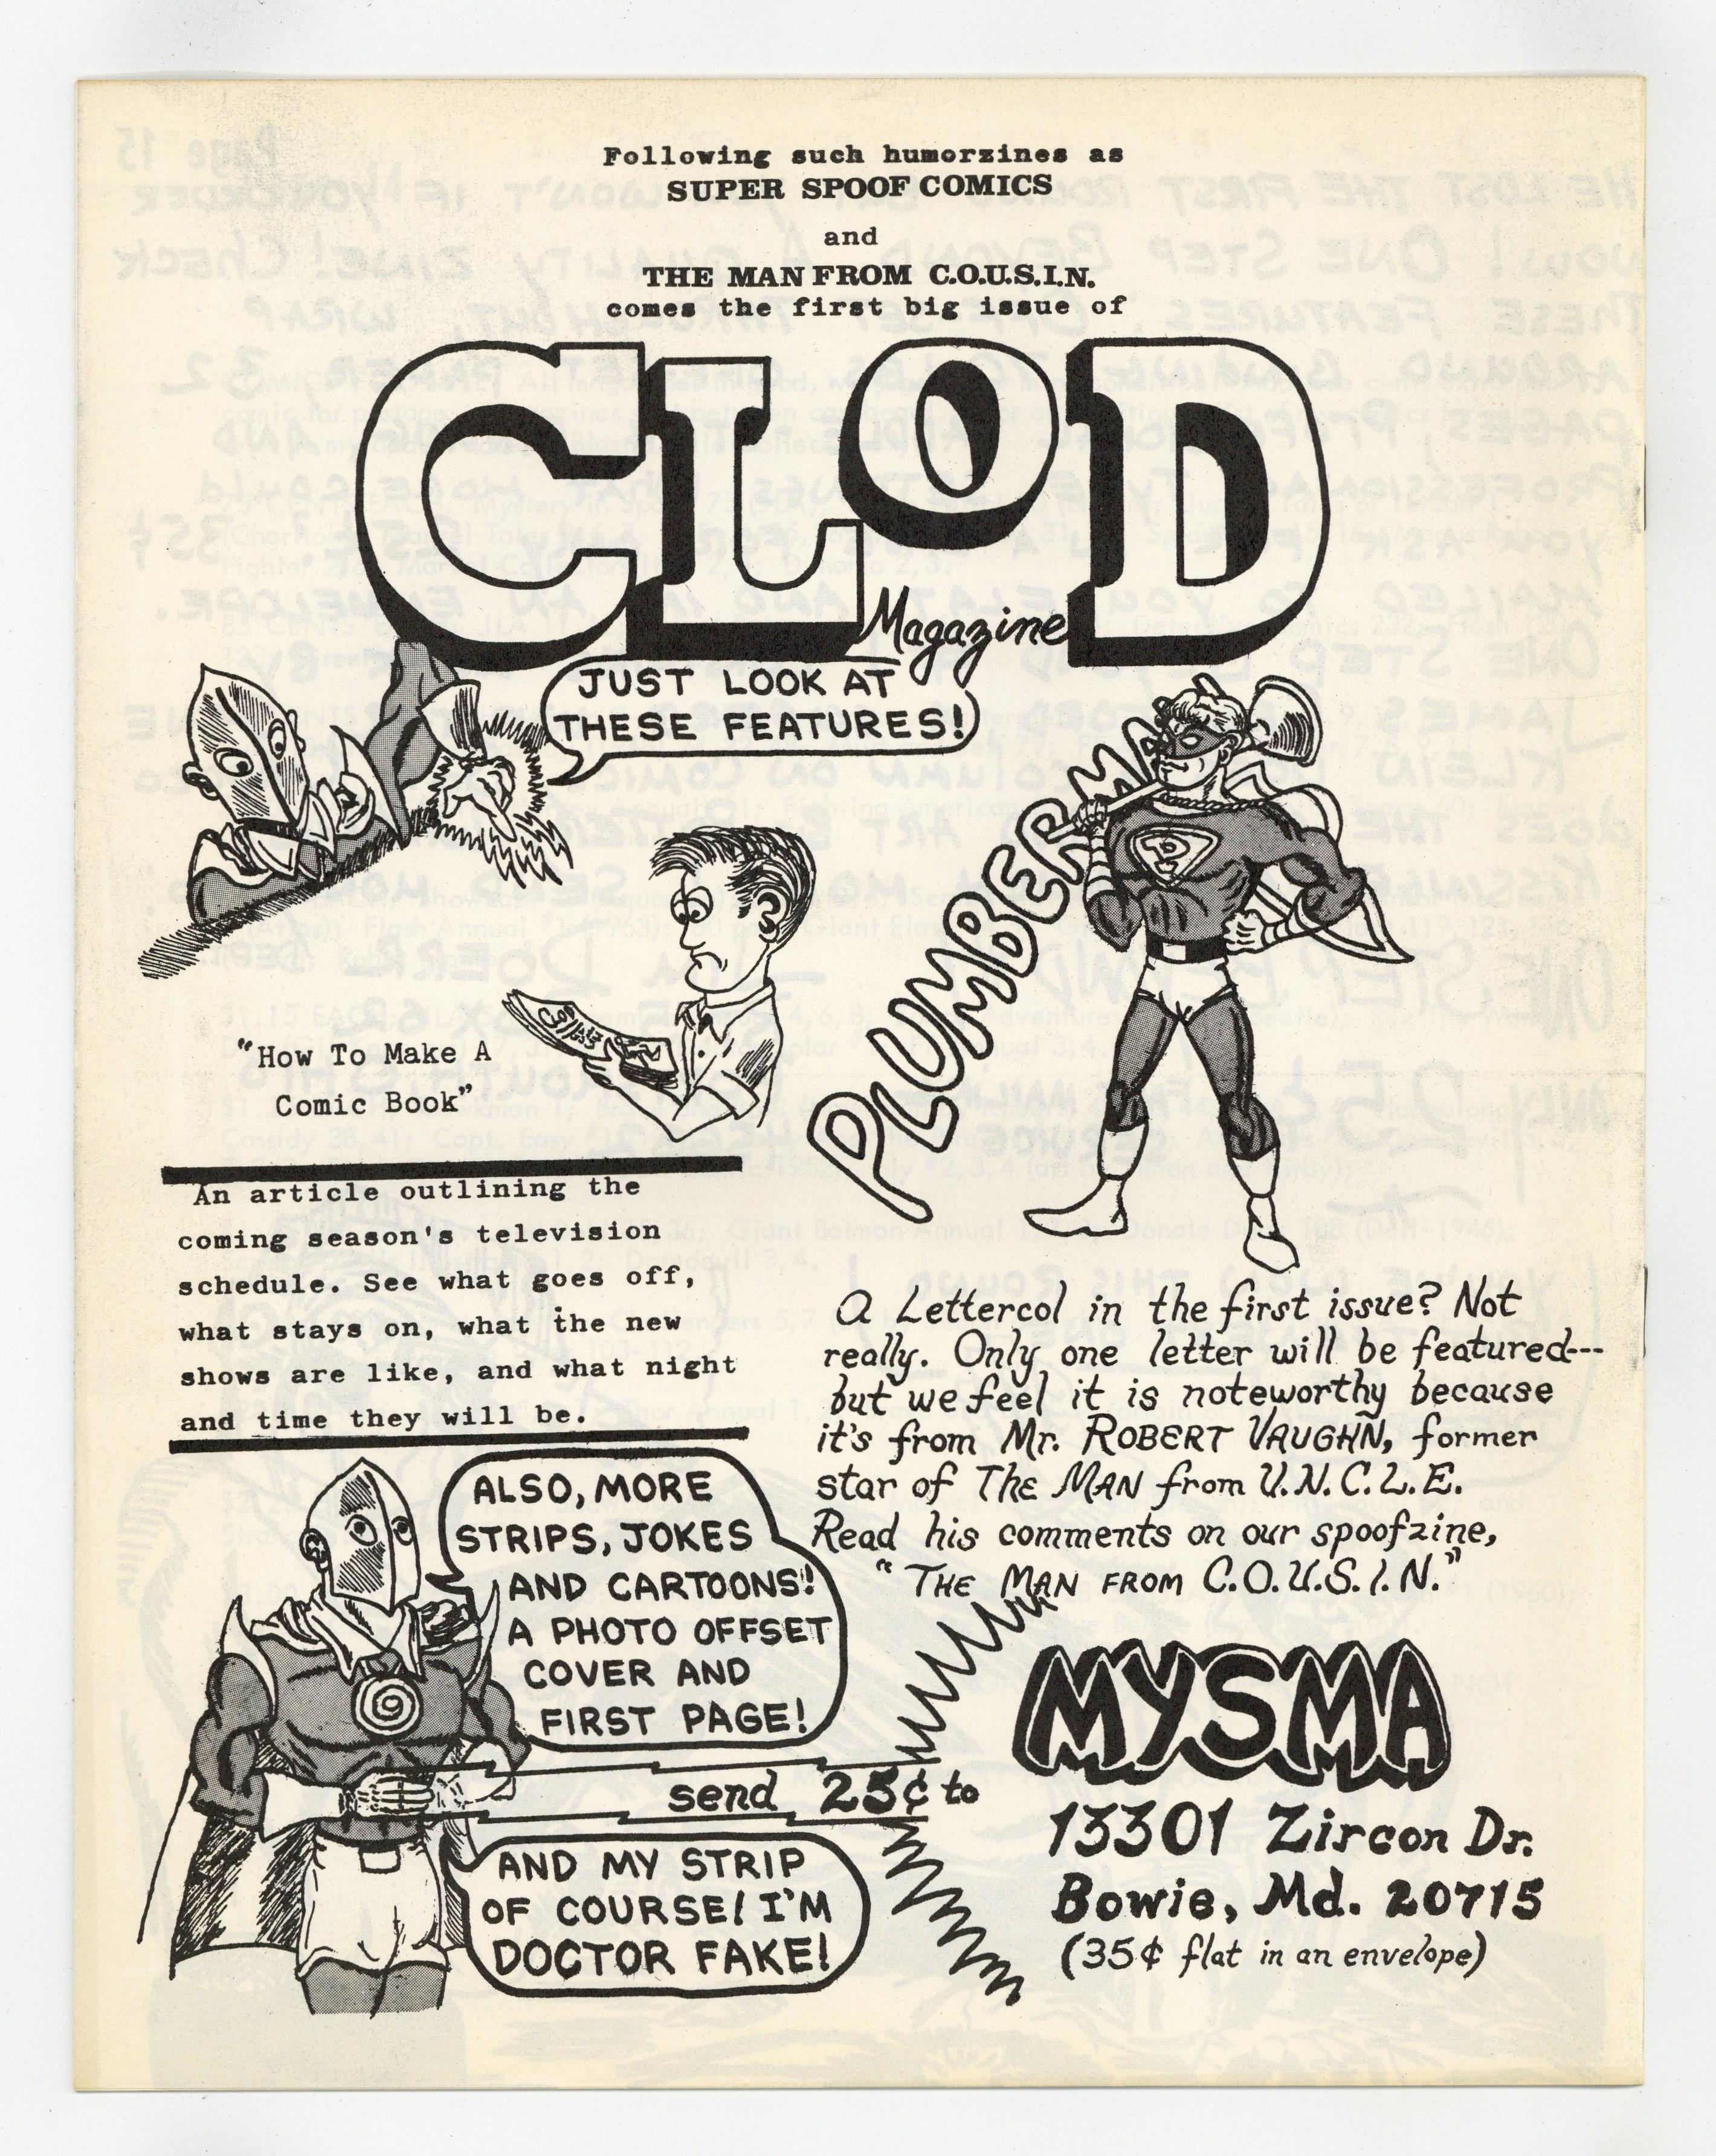 Following such humorzines as
SUPER SPOOF COMICS
and
THE MAN FROM C.O.U.S.I.N.
comes the first big issue of
CLOD
Magazine
JUST LOOK AT
THESE FEATURES!
PLUMBERMAN
P
"How To Make A
Comic Book"
An article outlining the
coming season's television
schedule. See what goes off,
what stays on, what the new
shows are like, and what night
and time they will be.
A Lettercol in the first issue? Not
really. Only one letter will be featured---
but we feel it is noteworthy because
it's from Mr. ROBERT VAUGHN, former
star of THE MAN from U.N.C.L.E.
Read his comments on our spoofzine,
"THE MAN FROM C.O.U.S.I.N."
ALSO, MORE
STRIPS, JOKES
AND CARTOONS!
A PHOTO OFFSET
COVER AND
FIRST PAGE!
send 25¢ to
MYSMA
13301 Zircon Dr.
Bowie, Md. 20715
(35¢ flat in an envelope)
AND MY STRIP
OF COURSE! I'M
DOCTOR FAKE!